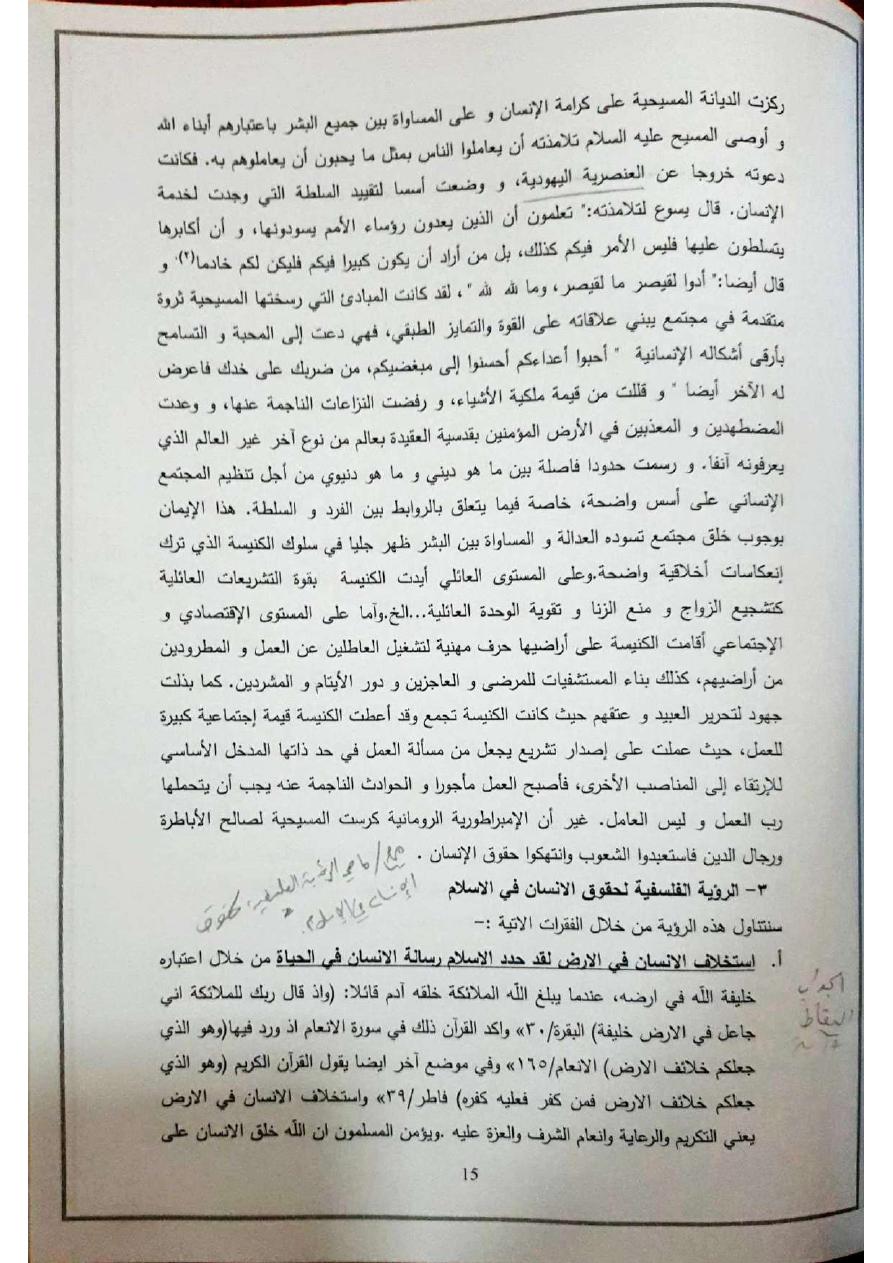 ركزت الديانة المسيحية على كرامة الإنسان و على المساواة بين جميع البشر باعتبارهم أبناء الله
و أوصى المسيح عليه السلام تلامذته أن يعاملوا الناس بمثل ما يحبون أن يعاملوهم به. فكانت
دعوته خروجا عن العنصرية اليهودية، و وضعت أسسا لتقييد السلطة التي وجدت لخدمة
الإنسان. قال يسوع لتلامذته:" تعلمون أن الذين يعدون رؤساء الأمم يسودونها، و أن أكابرها
يتسلطون عليها فليس الأمر فيكم كذلك، بل من أراد أن يكون كبيرا فيكم فليكن لكم خادما(٢). و
قال أيضا:" أدوا لقيصر ما لقيصر، وما لله لله "، لقد كانت المبادئ التي رسختها المسيحية ثروة
متقدمة في مجتمع يبني علاقاته على القوة والتمايز الطبقي، فهي دعت إلى المحبة و التسامح
بأرقى أشكاله الإنسانية " أحبوا أعداءكم أحسنوا إلى مبغضيكم، من ضربك على خدك فاعرض
له الآخر أيضا " و قللت من قيمة ملكية الأشياء، و رفضت النزاعات الناجمة عنها، و وعدت
المضطهدين و المعذبين في الأرض المؤمنين بقدسية العقيدة بعالم من نوع آخر غير العالم الذي
يعرفونه آنفا. و رسمت حدودا فاصلة بين ما هو ديني و ما هو دنيوي من أجل تنظيم المجتمع
الإنساني على أسس واضحة، خاصة فيما يتعلق بالروابط بين الفرد و السلطة. هذا الإيمان
بوجوب خلق مجتمع تسوده العدالة و المساواة بين البشر ظهر جليا في سلوك الكنيسة الذي ترك
إنعكاسات أخلاقية واضحة.وعلى المستوى العائلي أيدت الكنيسة بقوة التشريعات العائلية
كتشجيع الزواج و منع الزنا و تقوية الوحدة العائلية...الخ.وآما على المستوى الإقتصادي و
الإجتماعي أقامت الكنيسة على أراضيها حرف مهنية لتشغيل العاطلين عن العمل و المطرودين
من أراضيهم، كذلك بناء المستشفيات للمرضى و العاجزين و دور الأيتام و المشردين. كما بذلت
جهود لتحرير العبيد و عتقهم حيث كانت الكنيسة تجمع وقد أعطت الكنيسة قيمة إجتماعية كبيرة
للعمل، حيث عملت على إصدار تشريع يجعل من مسألة العمل في حد ذاتها المدخل الأساسي
للإرتقاء إلى المناصب الأخرى، فأصبح العمل مأجورا و الحوادث الناجمة عنه يجب أن يتحملها
رب العمل و ليس العامل. غير أن الإمبراطورية الرومانية كرست المسيحية لصالح الأباطرة
ورجال الدين فاستعبدوا الشعوب وانتهكوا حقوق الإنسان .
ماهي الرؤية الفلسفية لحقوق
الإنسان في الإسلام
٣- الرؤية الفلسفية لحقوق الانسان في الاسلام
سنتناول هذه الرؤية من خلال الفقرات الاتية :-
أ. استخلاف الانسان في الارض لقد حدد الاسلام رسالة الانسان في الحياة من خلال اعتباره
خليفة الله في ارضه، عندما يبلغ الله الملائكة خلقه آدم قائلا: (واذ قال ربك للملائكة اني
جاعل في الارض خليفة) البقرة/٣٠» واكد القرآن ذلك في سورة الانعام اذ ورد فيها(وهو الذي
جعلكم خلائف الارض) الانعام/١٦٥» وفي موضع آخر ايضا يقول القرآن الكريم (وهو الذي
جعلكم خلائف الارض فمن كفر فعليه كفره) فاطر/٣٩» واستخلاف الانسان في الارض
يعني التكريم والرعاية وانعام الشرف والعزة عليه .ويؤمن المسلمون ان الله خلق الانسان على
الجواب
النقاط
15